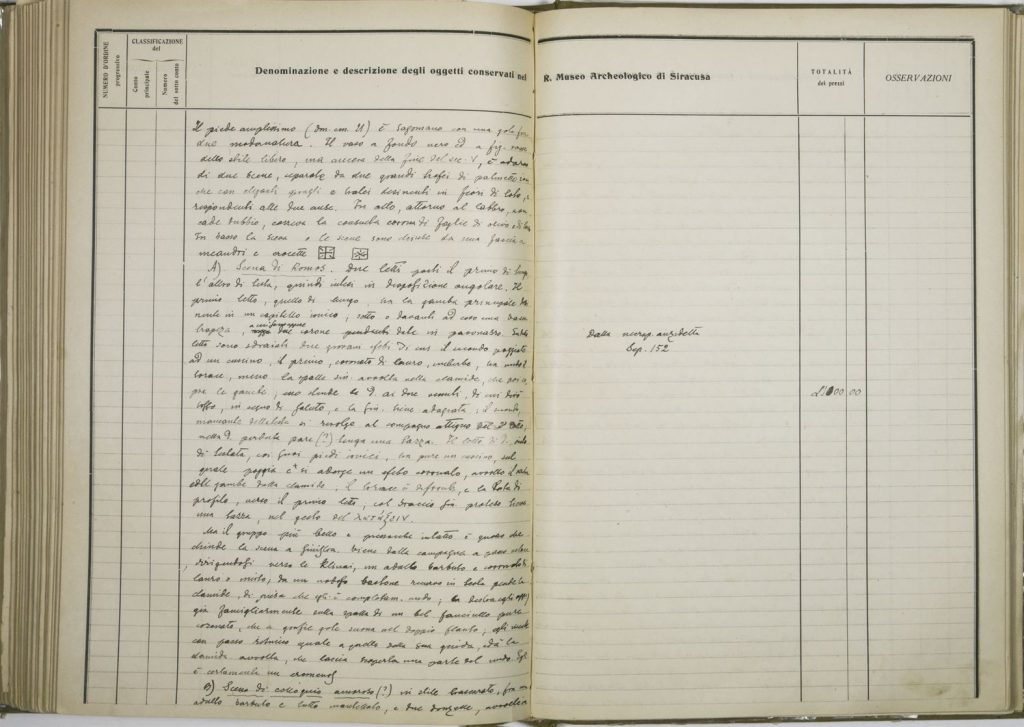 NUMERO D'ORDINE
progressivo
CLASSIFICAZIONE
del
Conto
principale
Numero
del sotto conto
Denominazione e descrizione degli oggetti conservati nel R. Museo Archeologico di Siracusa
TOTALITÀ
dei prezzi
OSSERVAZIONI
Il piede amplissimo (dm. cm. 21) è sagomato con una gola fra
due modanature. Il vaso a fondo nero ed a fig. rosse
dello stile libero, ma ancora della fine del sec. V, è adorno
di due scene, separate da due grandi trofei di palmette
che con eleganti giragli e tralci desinenti in fiori di loto,
rispondenti alle due anse. In alto, attorno al labbro, non
cade dubbio, correva la consueta corona di foglie di olivo
In basso la scena o le scene sono chiuse da una fascia a
meandri e crocette
A) Scena di Komos. Due letti posti il primo di lungo
l'altro di testa, quindi intesi in disposizione angolare. Il
primo letto, quello di lungo, ha la gamba principale
nente in un capitello ionico, sotto e davanti ad esso una bassa
trapeza, due corone pendenti date in paonazzo. Sul
letto sono sdraiati due giovani efebi di cui il secondo poggiato
ad un cuscino, il primo, coronato di lauro, imberbe, ha nudo il
torace, meno la spalla sin. avvolta nella clamide, che
pre le gambe; esso stende la D. ai due venuti, di cui dirò
sotto, in segno di saluto, e la sin. tiene adagiata; il secondo,
mancante della testa si rivolge al compagno attiguo del 2° letto,
nella D. perduta pare (?) tenga una tazza. Il letto di D.,
di testata, coi suoi piedi ionici, ha pure un cuscino, sul
quale poggia e si aderge un efebo coronato, avvolto
delle gambe dalla clamide; il torace è di fronte, e la testa di
profilo, verso il primo letto, col braccio sin. proteso tiene
una tazza, nel gesto del
Ma il gruppo più bello e pressoché intatto è quello che
chiude la scena a sinistra. Viene dalla campagna a passo
dirigendosi verso le Klinai, un adulto barbuto e coronato di
lauro o mirto; da un nodoso bastone pende la
clamide, di guisa che egli è completam. nudo; la destra egli
gia famigliarmente sulla spalla di un bel fanciullo pure
coronato, che a gonfie gote suona nel doppio flauto; egli
con passo ritmico quale a quello della sua guida, ed ha la
clamide avvolta, che lascia scoperta una parte del nudo. Egli
è certamente un eromenos
B) Scena di colloquio amoroso (?) in stile trascurato, fra un
adulto barbuto e tutto mantellato, e due donzelle, avvolte
Dalla necrop. anzidetta
Sep. 152